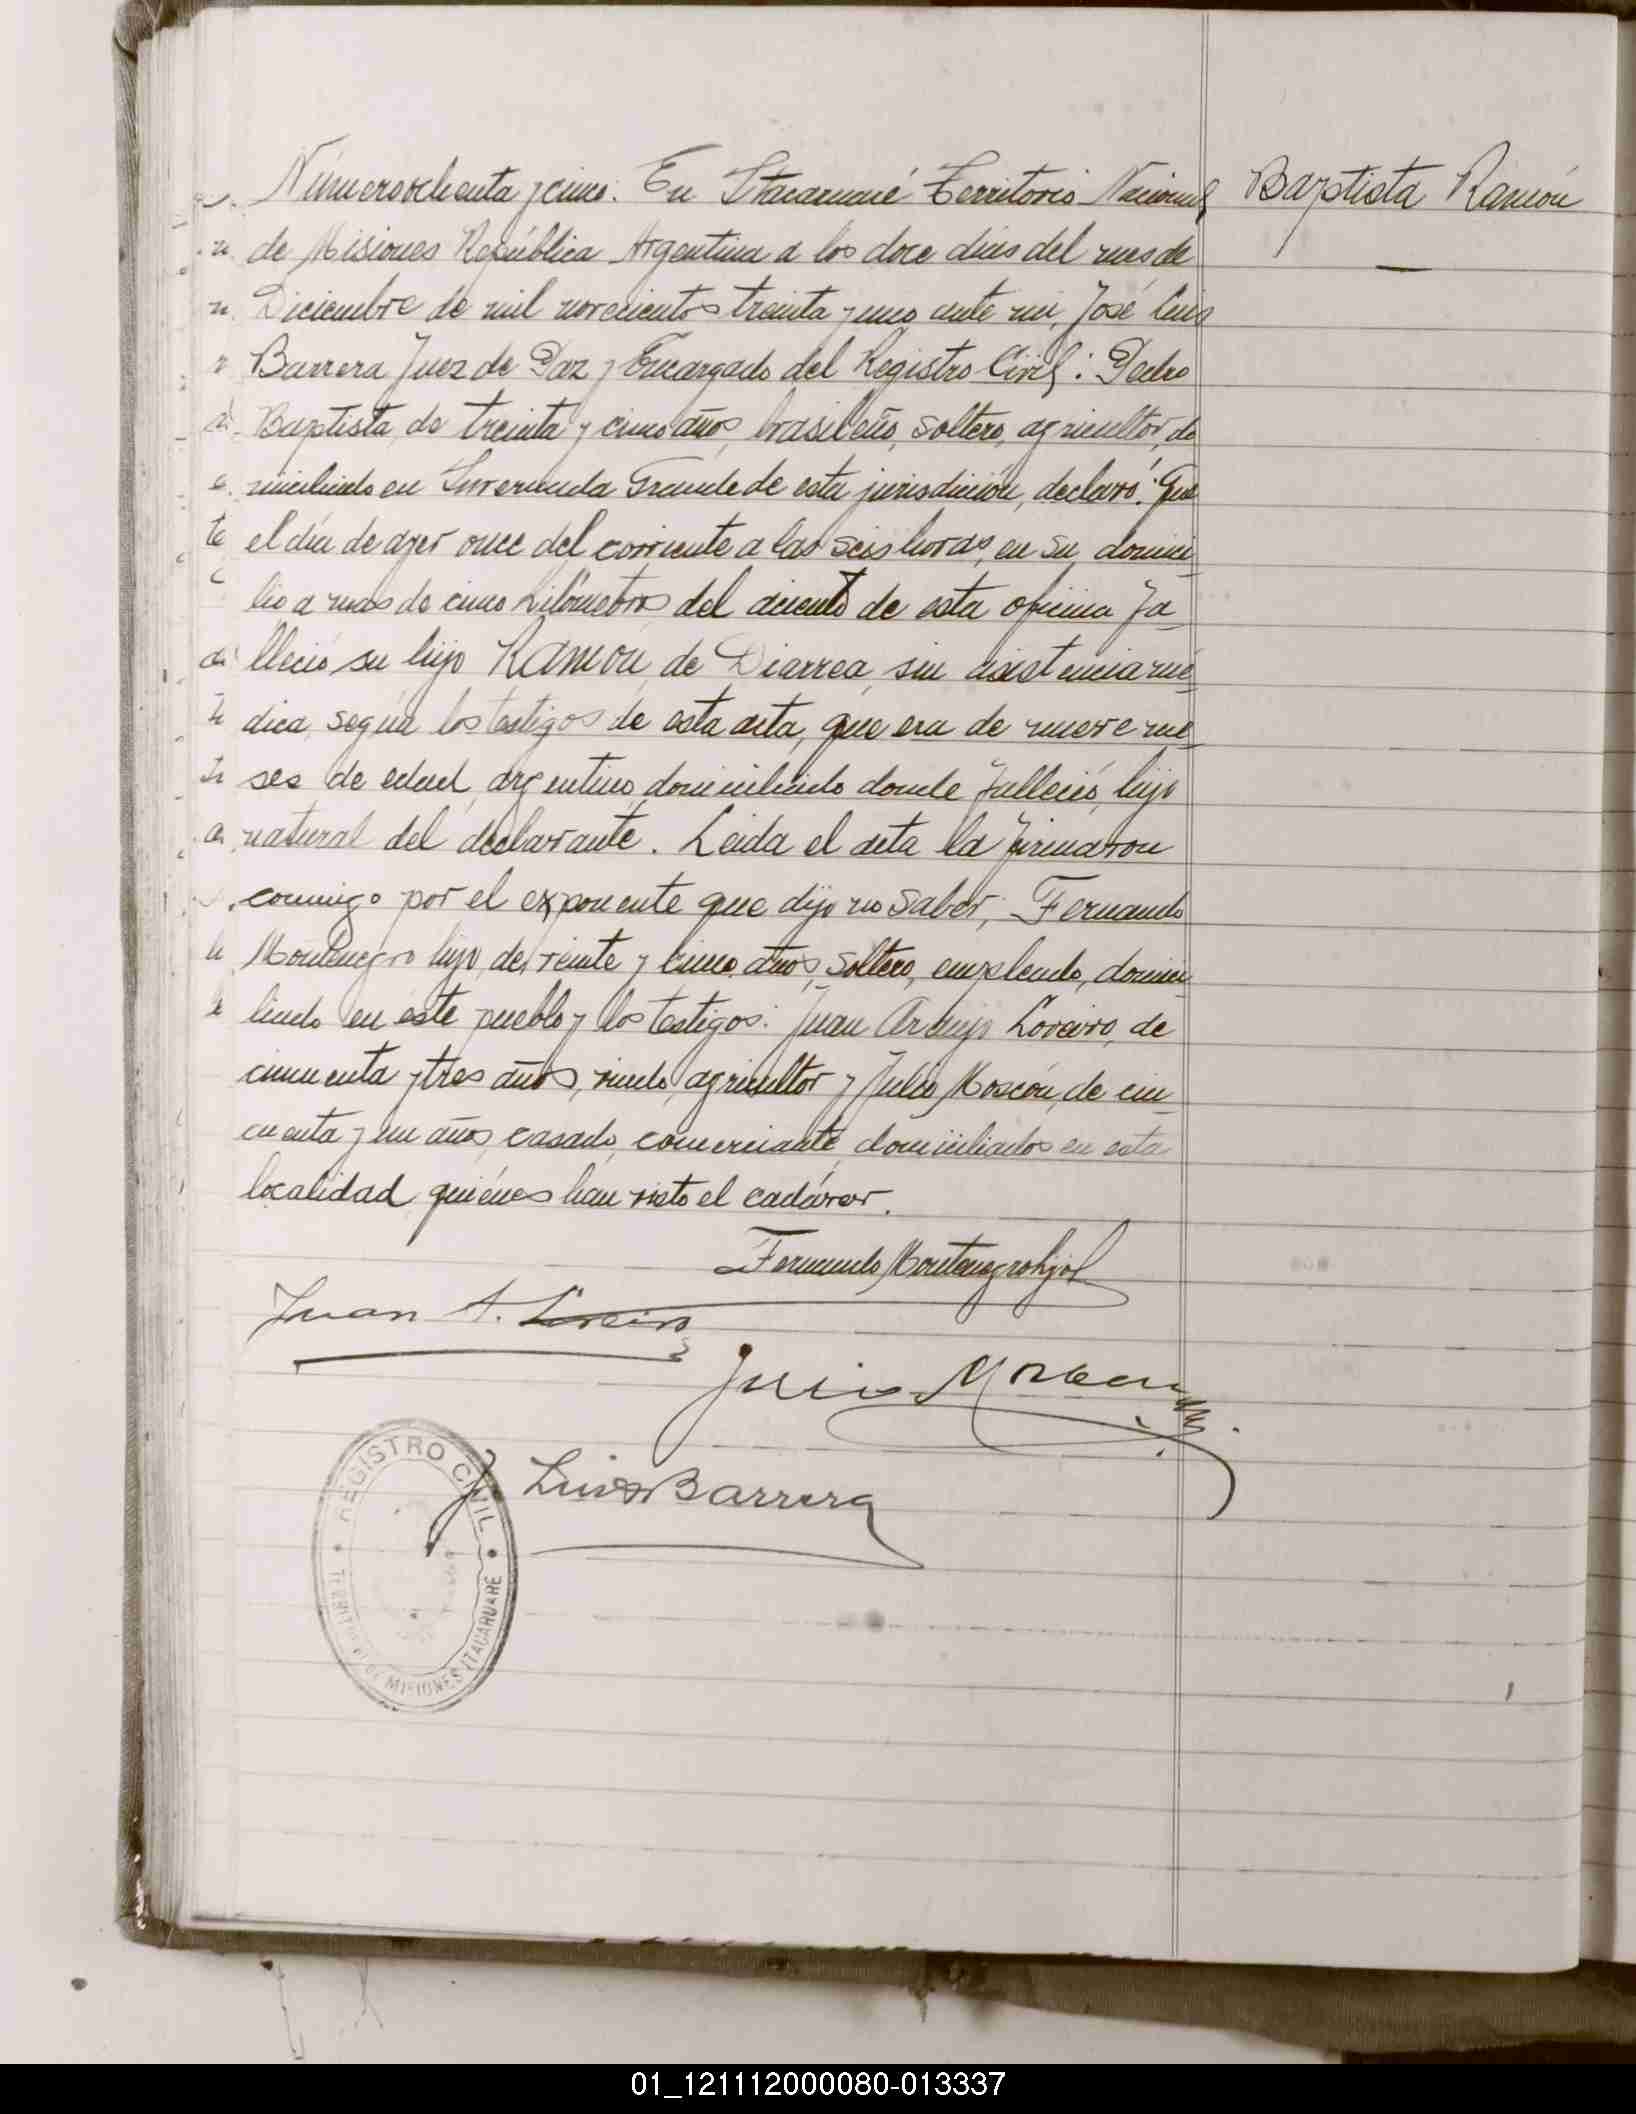 Número ochenta y cinco. En Itacaruaré Territorio Nacional
Baptista Ramón
de Misiones República Argentina a los doce días del mes de
Diciembre de mil novecientos treinta y uno ante mi, José Luis
Barrera Juez de Paz y Encargado del Registro Civil: Pedro
Baptista, de treinta y cinco años, brasileño, soltero, agricultor, do
miciliado en Invernada Grande de esta jurisdicción, declaró: Que
el día de ayer once del corriente a las seis horas, en su domici-
lio a mas de cinco kilómetros del aciento de esta oficina fa-
lleció su hijo Ramón, de Diarrea, sin asistencia mé-
dica, según los testigos de esta acta, que era de nueve me-
ses de edad, argentino, domiciliado donde falleció, hijo
natural del declarante. Leida el acta la firmaron
conmigo por el exponente que dijo no saber, Fernando
Montenegro hijo, de veinte y cinco años, soltero, empleado, domici-
liado en este pueblo y los testigos: Juan Araujo Loreiro, de
cincuenta y tres años, viudo, agricultor y Julio Moscón, de cin-
cuenta y un años, casado, comerciante, domiciliados en esta
localidad quiénes han visto el cadáver.
Fernando Montenegro hijo
Juan A. Loreiro
Julio
J Luis Barrera
REGISTRO CIVIL
TERRITORIO DE MISIONES ITACARUARE
01_121112000080-013337